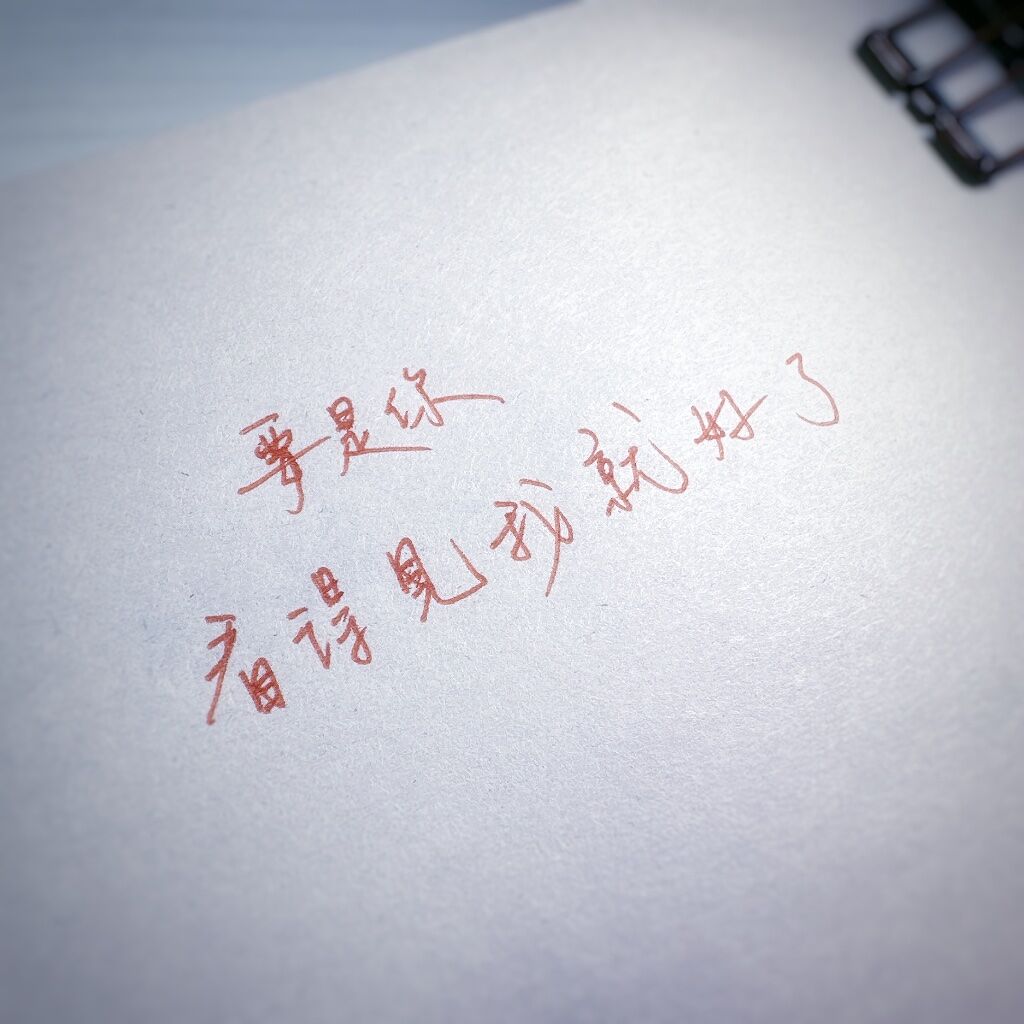 要是你
看得見我就好了